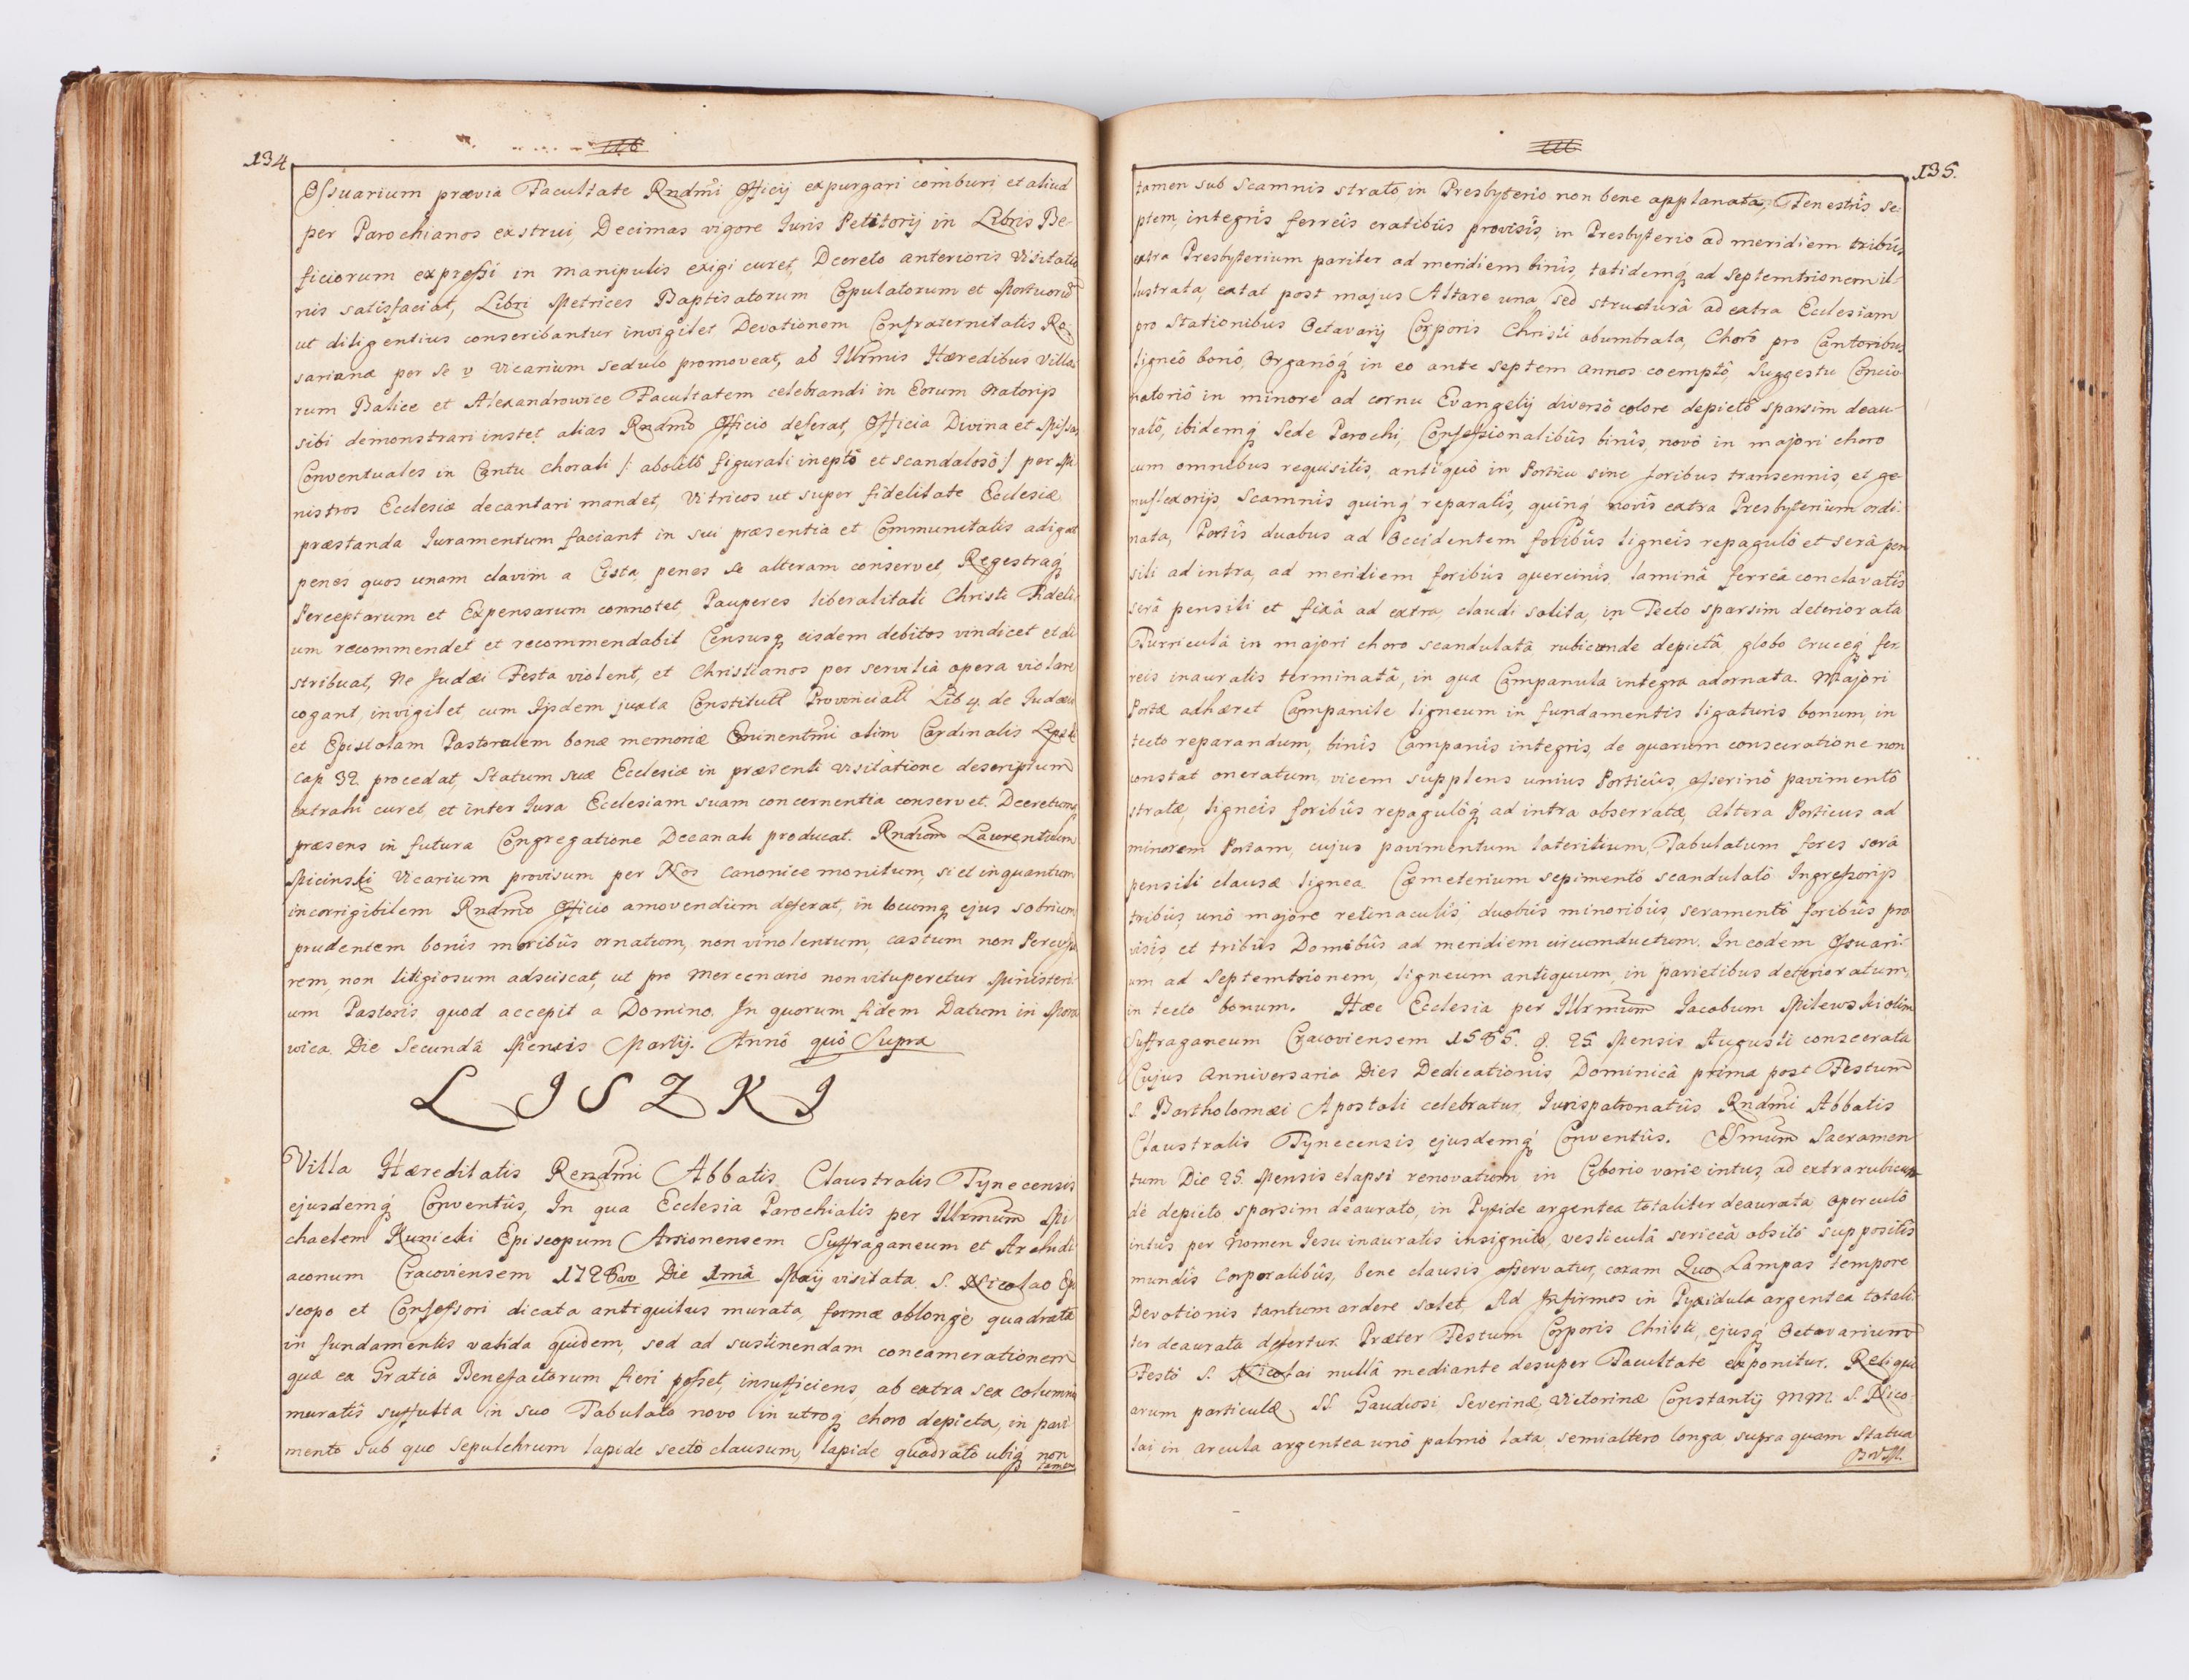 134
Ossuarium prævia Facultate Rndmi Officij expurgari comburi et aliud
per Parochianos exstrui, Decimas vigore Iuris Petitorij in Libris Be-
ficiorum expressi in manipulis exigi curet, Dcereto anterioris Visitatio
nis satisfaciat, Libri Metrices Baptisatorum Copulatorum et Mortuorū
ut diligentius conseribantur invigilet Devotionem Confraternitatis Ro-
sarianæ per se v Vicarium sedulo promoveat, ab Illrmis Hæredibus Villa
rum Balice et Alexandrowice Facultatem celebrandi in Eorum Oratorijs
sibi demonstrari instet alias Rndmo Officio deferat, Officia Divina et Missas
Conventuales in Cantu chorali /: abolitô figurali ineptô et scandalosô :/ per Mi
nistros Ecclesiæ decantari mandet, Vitricos ut super fidelitate Ecclesiæ
præstanda Iuramentum faciant in sui præsentia et Communitatis adigat
penes quos unam clavim a Cista, penes se alteram conservet, Regestraq́
Perceptorum et Expensarum connotet, Pauperes liberalitati Christi Fideli
um recommendet et recommendabit Censusq eisdem debitos vindicet et di
stribuat, Ne Judæi Festa violent, et Christianos per servilia opera violare
cogant, invigilet, cum Ijsdem juxta Constitutt Provinciatt Lib 4. de Judæis
et Epistolam Pastoralem bonæ memoriæ Eminentmi olim Cardinalis Lipski
cap 32 procedat, Statum suæ Ecclesiæ in præsenti visitatione descriptum
extrahi curet, et inter Iura Ecclesiam suam concernentia conservet. Dceretum
præsens in futura Congregatione Decanali producat. Rndum Laurentium
Micinski Vicarium provisum per Nos canonice monitum, si et inquantum
incorrigibilem Rndmo Officio amovendum deferat, in locumq ejus sobrium
prudentem bonîs moribûs ornatum, non vinolentum, castum non Percusso
rem, non litigiosum adsciscat, ut pro mercenario non vituperetur Ministeri-
um Pastoris quod accepit a Domino. In quorum fidem Datum in Mora
wica Die Secundâ Mensis Martij. Annô quô Supra
LISZKI
Villa Hæreditatis Rendmi Abbatis Claustralis Tynecensis
ejusdemq́ Conventûs, In qua Ecclesia Parochialis per Illrmum Mi
chaelem Kunicki Episcopum Arsionensem Suffraganeum et Archidi
aconum Cracoviensem 1728avo Die 1mâ Maij visitata. S. Nicolao Epi
scopo et Confessori dicata antiquitus murata, formæ oblongè quadratæ
in fundamentis valida quidem, sed ad sustinendam concamerationem
quæ ex Gratia Benefactorum fieri posset, insufficiens, ab extra sex columnis
muratîs suffulta in suo Tabulato novo in utroq choro depicta, in pavi
mento sub quo sepulchrum lapide sectô clausum, lapide quadratô ubiq́ non
tamen
135.
tamen sub scamnis strato, in Presbyterio non bene applanata, Fenestrîs se-
ptem, integrîs ferreîs cratibûs provisîs, in Presbyterio ad meridiem tribûs
extra Presbyterium pariter ad meridiem binîs, totidemq́ ad septemtrionem il-
lustrata, extat post majus Altare una, sed structurâ ad extra Ecclesiam
pro Stationibûs Octavarij Corporis Christi obumbrata, Chorô pro Cantoribus
ligneô bonô, Organóq́ in eo ante septem annos coemptô, Suggestu Concio-
natoriô in minore ad cornu Evangelij diversô colore depictô sparsim deau-
ratô, ibidemq́ Sede Parochi, Confessionalibûs binîs, novô in majori choro
cum omnibus requisitîs, antiquô in Porticu sine foribus transennis, et ge-
nuflexorijs, Scamnîs quinq́ reparatîs, quinq́ novîs extra Presbyterium ordi-
nata, Portîs duabus ad Occidentem foribûs ligneîs repagulô et serâ pen
sili ad intra, ad meridiem foribûs quercinîs, laminâ ferreâ conclavatîs
serâ pensili et fixâ ad extra, claudi solita, in Tecto sparsim deteriorata
Turriculâ in majori choro scandulatâ rubicunde depictâ, globo cruceq́ fer-
reis inauratis terminatâ, in qua Campanula integra adornata. Majori
Portæ adhæret Campanile ligneum in fundamentis ligaturis bonum, in
tecto reparandum, binîs Campanîs integris, de quarum conscuratione non
constat oneratum, vicem supplens unius Porticûs, asserinô pavimentô
stratæ, ligneîs foribûs repagulôq́ ad intra obserratæ, Altera Porticus ad
minorem Portam, cujus pavimentum lateritium, Tabulatum fores serâ
pensili clausæ lignea. Cœmeterium sepimentô scandulatô Ingressorijs
tribûs, unô majore retinaculîs, duobûs minoribûs, seramentô foribûs pro
visîs et tribûs Domibûs ad meridiem circumductum. In eodem Ossuari-
um ad Septemtrionem, ligneum antiquum, in parietibus deterioratum,
in tecto bonum. Hæc Ecclesia per Illrmum Iacobum Milewski olim
Suffraganeum Cracoviensem 1565. d. 25 Mensis Augusti consecrata
Cujus Anniversaria Dies Dedicationis Dominicâ prima post Festum
S. Bartholomæi Apostoli celebratur, Iurispatronatûs Rndmi Abbatis
Claustralis Tynecensis ejusdemq́ Conventûs. SSmum Sacramen
tum Die 25. Mensis elapsi renovatum in Ciborio varie intus, ad extra rubicun
dè depicto sparsim deaurato, in Pyxide argentea totaliter deaurata, operculô
intûs per nomen Iesu inauratis insignito, vesticulâ sericeâ obsitô suppositîs
mundîs Corporalibûs, bene clausis asservatur, coram Quo Lampas tempore
Devotionis tantum ardere solet, Ad Infirmos in Pyxidula argentea totali-
ter deaurata defertur. Præter Festum Corporis Christi ejusq́ Octavarium
Festô S. Nicolai nullâ mediante desuper Facultate exponitur. Reliqui
arum particulæ, SS Gaudiosi Severinæ, Victorinæ Constantij MM. S. Nico-
lai in arcula argentea unô palmô lata semialtero longa supra quam Statua
BVM.